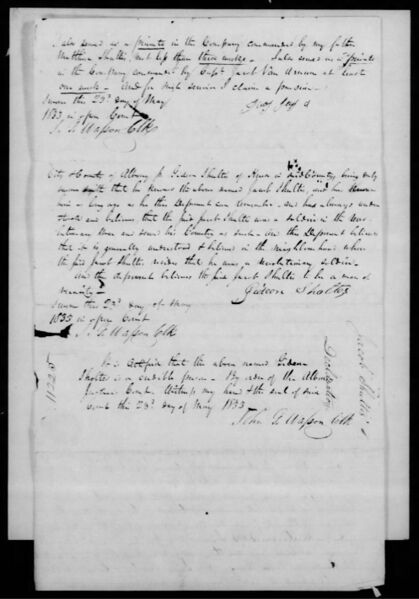 I also served as a private in the Company commanded by my father
Matthew Shultis, not less than three weeks. I also served as a private
in the Company commanded by Capt. Jacob Van at least
one week. And for such service I claim a pension.
Sworn this 23d day of May
1833 in open Court
J. G. Wasson Clk
City & County of Albany ss Gideon Shultis of in said County being duly
sworn saith that he knows the above named Jacob Shultis, and has known
him as long as he this Deponent can remember. and has always under
stood and believes that the said Jacob Shultis was a soldier in the Revo
lutionary War and served his Country as such. And this Deponent believes
that it is generally understood & believed in the neighbourhood where
the said Jacob Shultis resides that he was a revolutionary soldier.
And the deponent believes the said Jacob Shultis to be a man of
veracity.
Gideon Shultis
Sworn this 23d day of May
1833 in open Court
J. G. Wasson Clk
It is certified that the above named Gideon
Shultis is a credible person. By order of the Albany
Justices Court. Witness my hand & the seal of said
Court this 23d day of May 1833.
John G. Wasson Clk
Declaration
Jacob Shultis